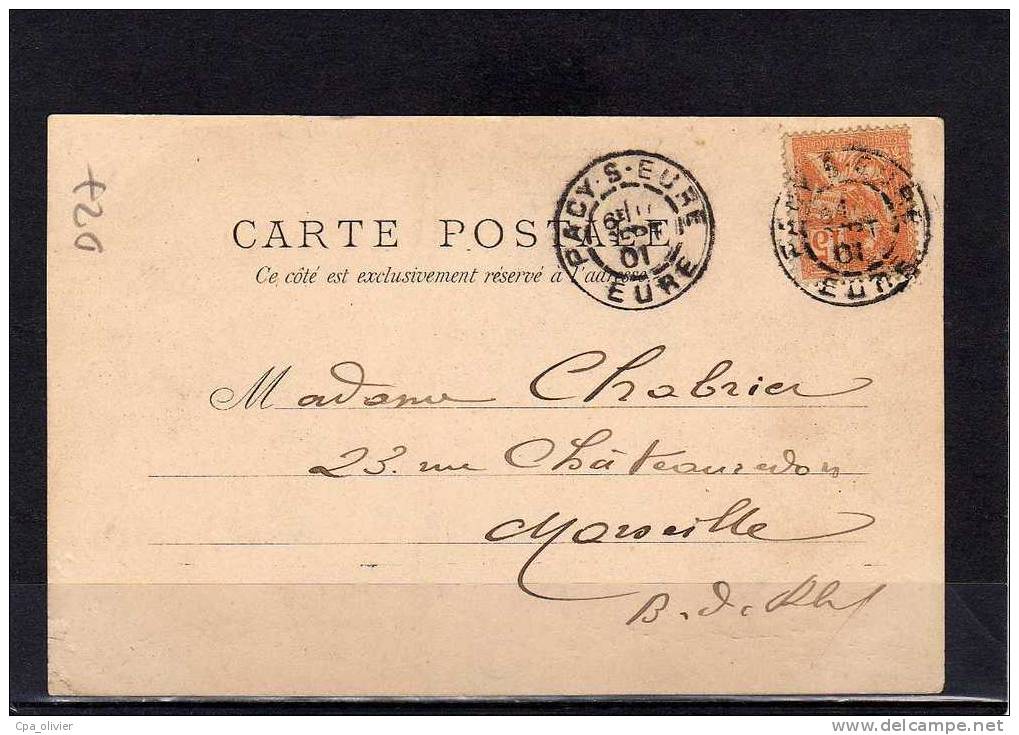 PACY-S-EURE
SEPT
01
EURE
SEPT
01
EURE
15
CARTE POSTALE
Ce côté est exclusivement réservé à l'adresse
Madame Chabrier
23. rue Châteauredon
Marseille
B. d. Rh
Cpa_olivier
www.delcampe.net